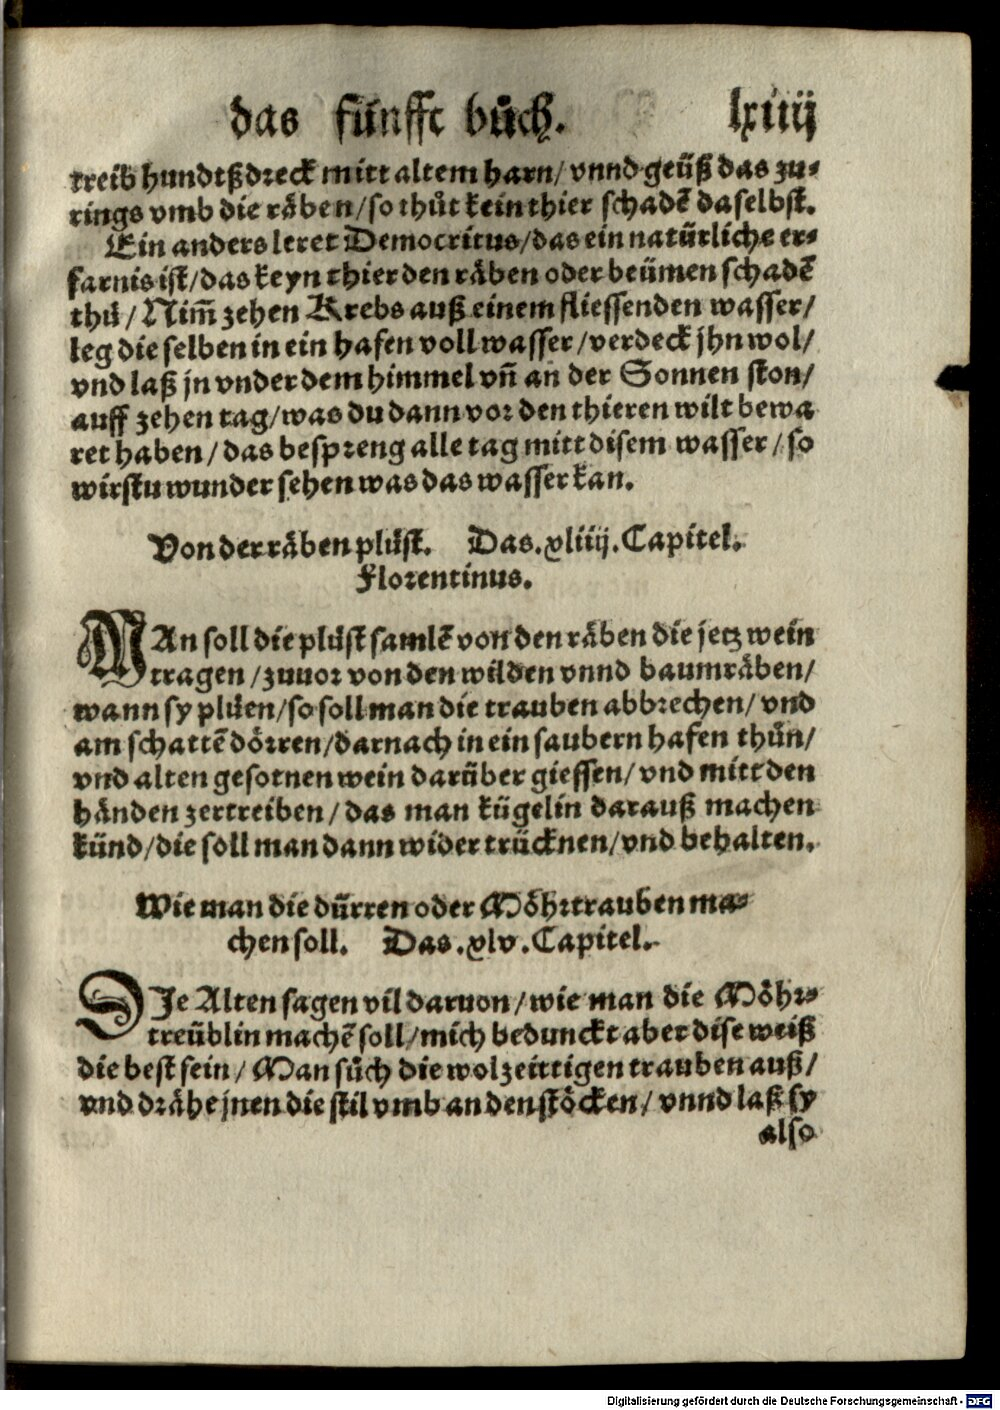 das fünfft bůch. lxiiij
treib hundtßdreck mitt altem harn/ vnnd geüß das zu-
rings vmb die räben/ so thůt kein thier schadẽ daselbst.
Ein anders leret Democritus/ das ein natürliche er-
farnis ist/ das keyn thier den räben oder beümen schadẽ
thů/ Nim̃ zehen Krebs auß einem fliessenden wasser/
leg die selben in ein hafen voll wasser/ verdeck jhn wol/
vnd laß jn vnder dem himmel vñ an der Sonnen ston/
auff zehen tag/ was du dann vor den thieren wilt bewa
ret haben/ das bespreng alle tag mitt disem wasser/ so
wirstu wunder sehen was das wasser kan.
Von der räben plüst. Das .xliiij. Capitel.
Florentinus.
MAn soll die plüst samlẽ von den räben die jetz wein
tragen/ zuuor von den wilden vnnd baumräben/
wann sy plüen/ so soll man die trauben abbrechen/ vnd
am schattẽ dörren/ darnach in ein saubern hafen thůn/
vnd alten gesotnen wein darüber giessen/ vnd mitt den
händen zertreiben/ das man kügelin darauß machen
künd/ die soll man dann wider trücknen/ vnd behalten.
Wie man die dürren oder Möhrtrauben ma-
chen soll. Das .xlv. Capitel.
DIe Alten sagen vil daruon/ wie man die Möhr-
treüblin machẽ soll/ mich bedunckt aber dise weiß
die best sein/ Man sůch die wolzeittigen trauben auß/
vnd drähe jnen die stil vmb an den stöcken/ vnnd laß sy
also
Digitalisierung gefördert durch die Deutsche Forschungsgemeinschaft - DFG